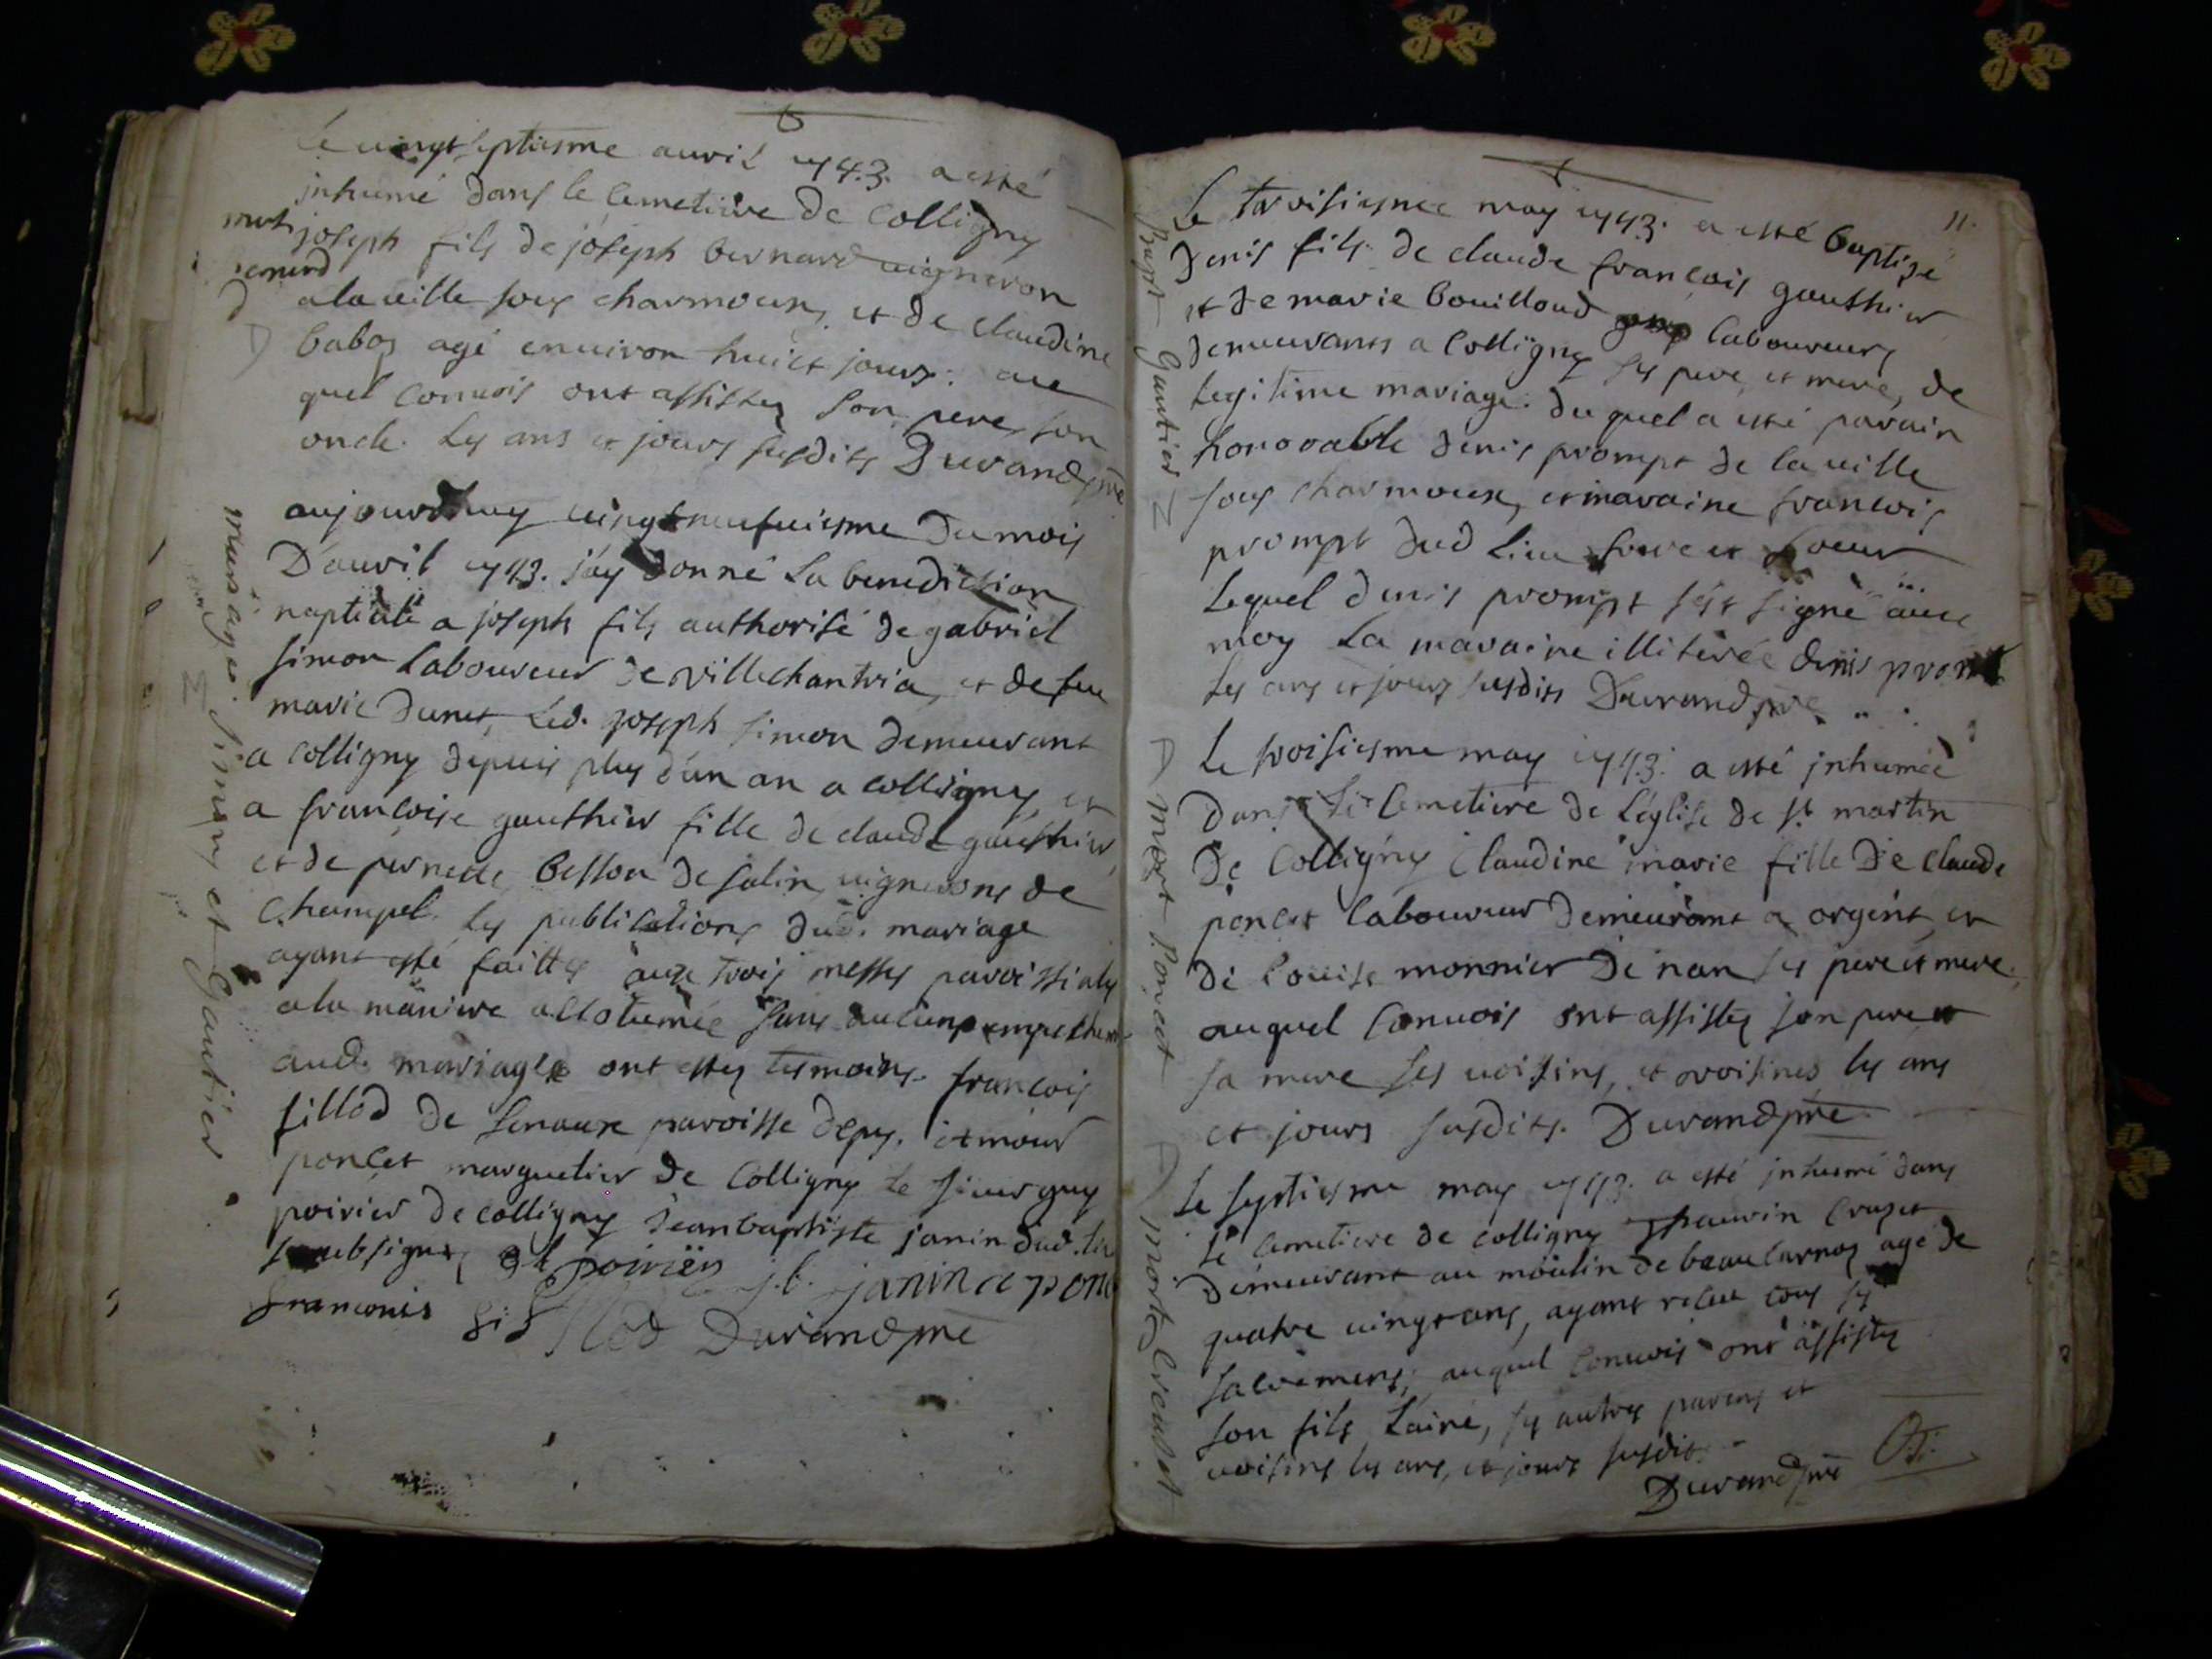 Le vingt septiesme avril 1743. a esté
inhumé dans le Cemetiere de Colligny
mort joseph fils de joseph bernard vigneron
bernard
a la ville sous charmoux, et de claudine
baboz agé environ huict jours. au
quel Convois ont assistez Son pere, son
oncle. Les ans et jours susdits Durand pre
aujourdhuy vingt neufviesme du mois
D'avril 1743. j'ay donné La benediction
nuptiale a joseph fils authorisé de gabriel
simon Laboureur de villechantria, et de feu
marie Led. joseph simon demeurant
a Colligny depuis plus d'un an a colligny et
a francoise gauthier fille de claude gauthier
et de pernette besson de salin vignerons de
Les publications dud. mariage
ayant esté faittes aux trois messes paroissiales
a la maniere accotumée sans aucunp
aud. mariage ont estez tesmoins. francois
fillod de Senaux paroisse depy.
poncet marguelier de Colligny Le sieur guy
poirier de colligny jean baptiste janin dud. lieu
soubsignez poirier j.b. janin c pon
francouis fillod Durand pre
mariage. Simon et Gautier
11.
Le troisiesme may 1743. a esté baptizé
denis fils de claude francois gauthier
et de marie bouilloud laboureurs
demeurants a Colligny ses pere et mere, de
legitime mariage. duquel a esté parain
honorable denis prompt de la ville
sous charmoux, et maraine francois
prompt dud Lieu frere et soeur
Lequel denis prompt s'est signé avec
moy La maraine illiterée denis pront
Les ans et jours susdits Durand pre
Bapt Gautier
Le troisiesme may 1743. a esté inhumée
dans Le Cemetiere de L'eglise de st martin
De Colligny Claudine marie fille De claude
poncet laboureur demeurant a orgent et
de Louise monnier De nan ses pere et mere.
auquel Convois ont assistez son pere et
sa mere ses voisins, et voisines les ans
et jours susdits. Durand pre
Mort Poncet
Le septiesme may 1743. a esté inhumé dans
Le Cemetiere de Colligny
demeurant au moulin de beaucarnoz agé de
quatre vingt ans, ayant receu tous ses
sacremens, auquel Convois ont assistez
son fils L'ainé, ses autres parens et
voisins les ans, et jours susdit.
Durand pre
mort